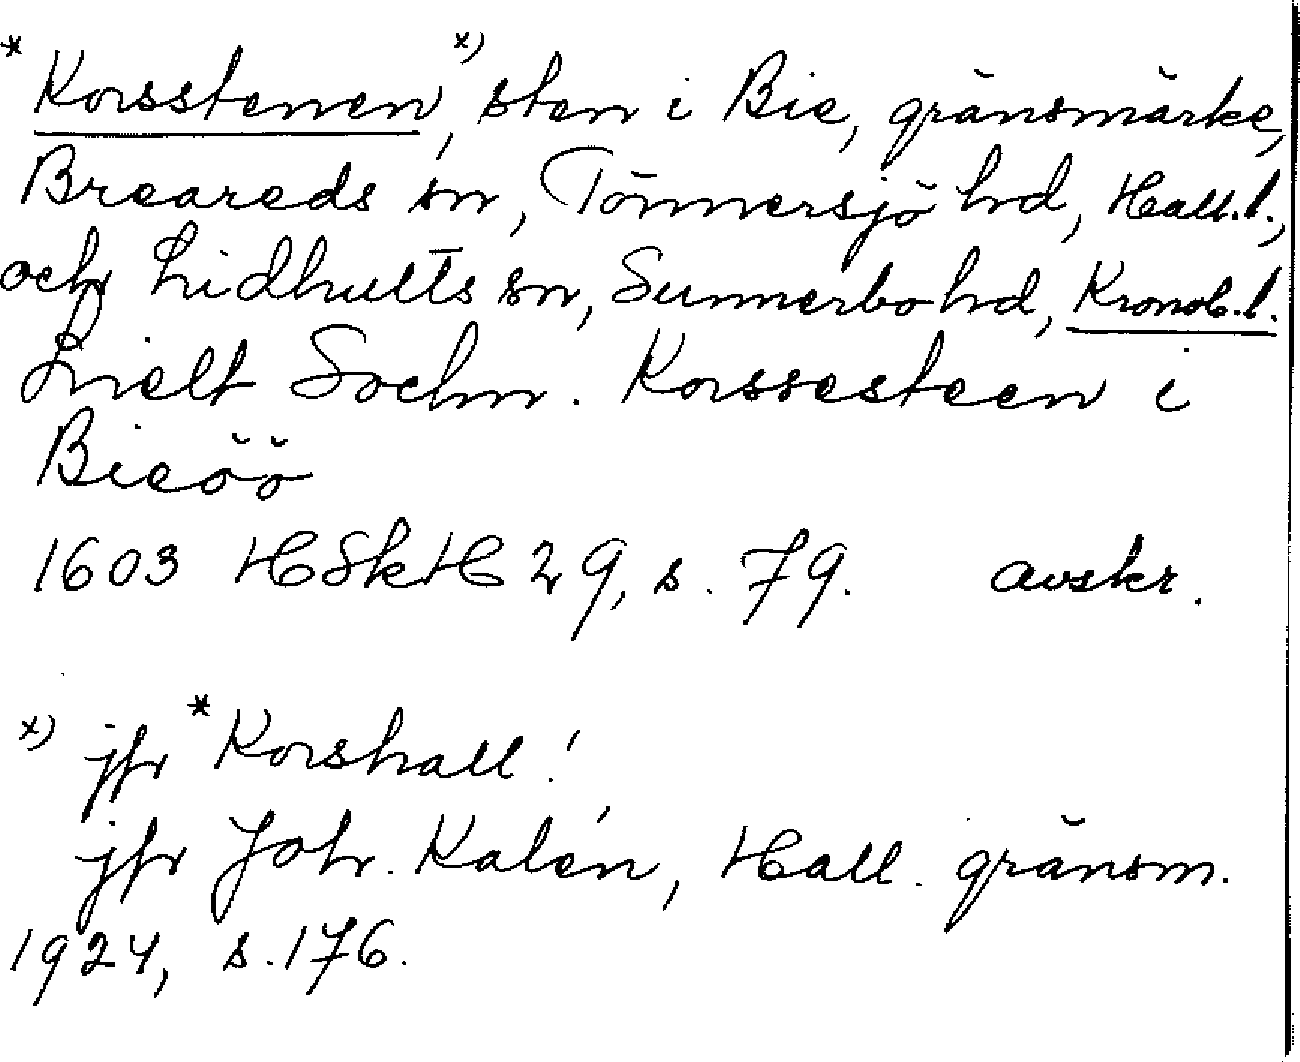 *Korsstenen,ˣ⁾ sten i Bie, gränsmärke,
Breareds sn, Tönnersjö hd, Hall.l.,
och Lidhults sn, Sunnerbo hd, Kronob.l.
Lielt Sochn. Korssesteen i
Bieöö
1603 HSkH 29, s. 79. avskr.
ˣ⁾ jfr *Korshall!
jfr Joh. Kalén, Hall. gränsm.
1924, s. 176.